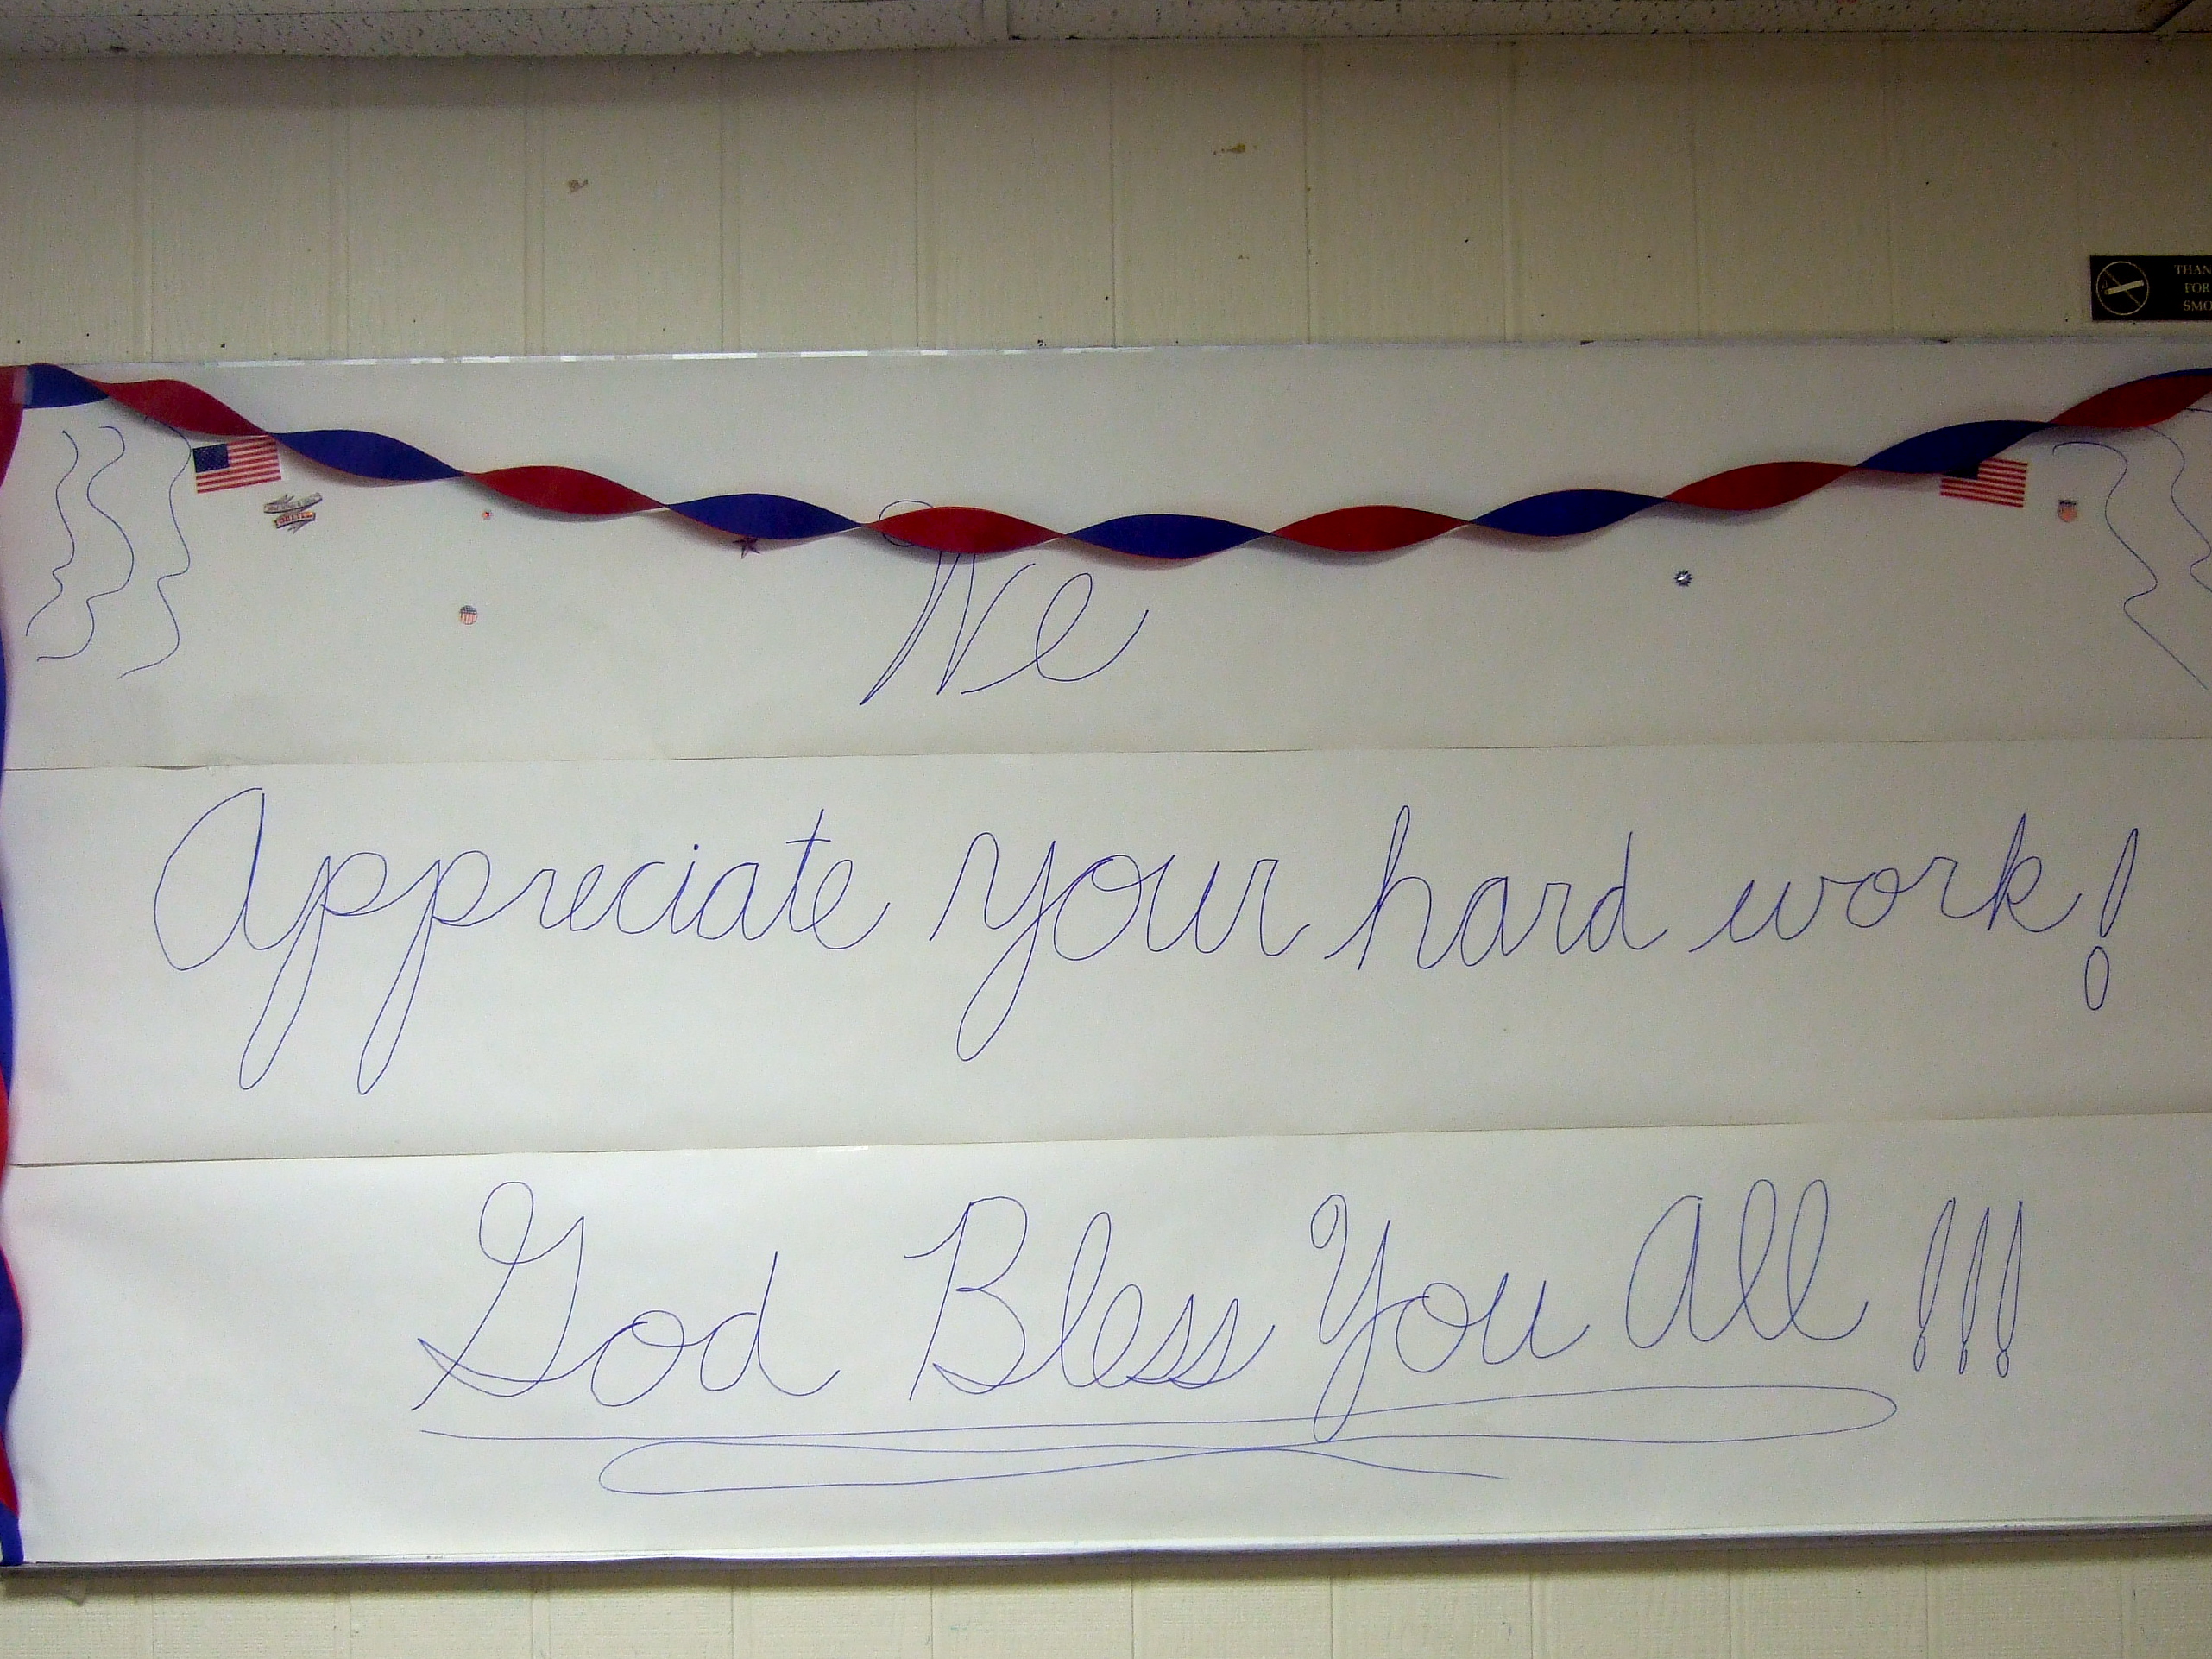 THAN
FOR
SMO
FOREVER
We
Appreciate your hard work!
God Bless You All !!!